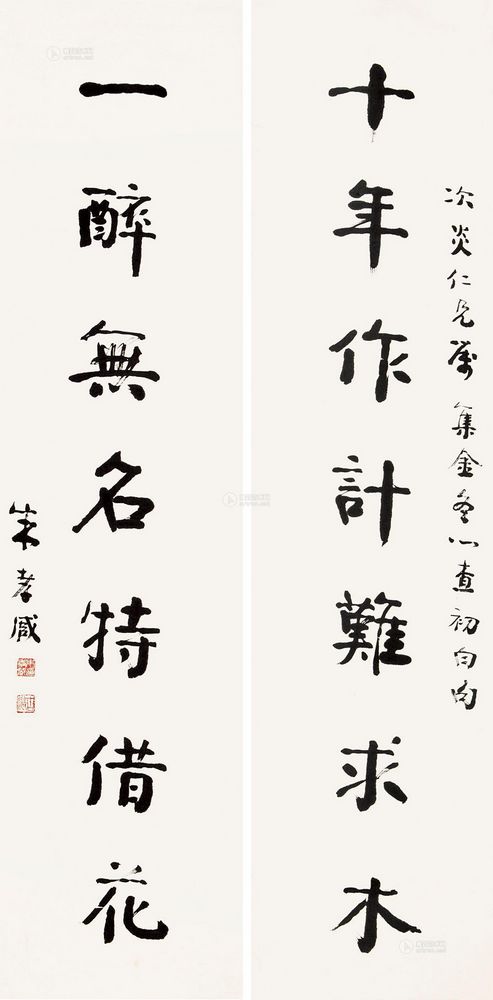 次炎仁兄屬 集金冬心查初白句
十年作計難求木
一醉無名特借花
朱孝臧